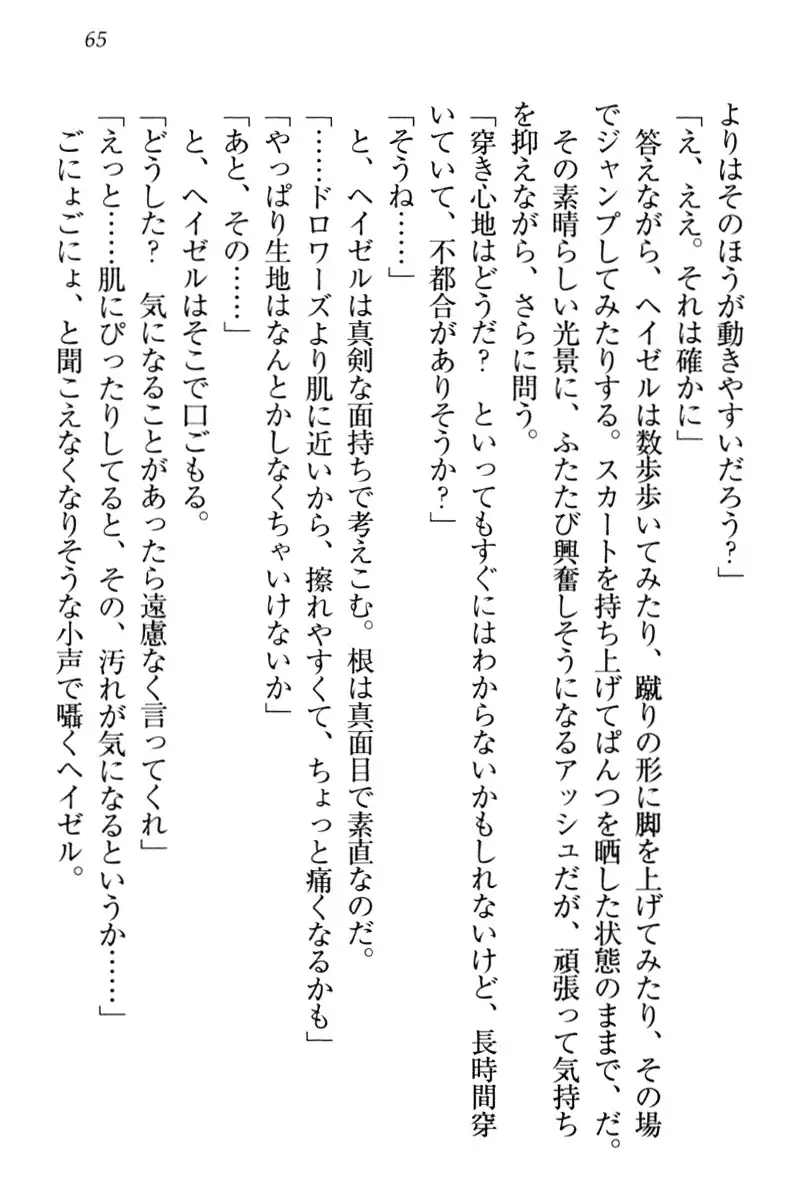 65
よりはそのほうが動きやすいだろう?」
「え、ええ。それは確かに」
答えながら、ヘイゼルは数歩歩いてみたり、蹴りの形に脚を上げてみたり、その場
でジャンプしてみたりする。スカートを持ち上げてぱんつを晒した状態のままで、だ。
その素晴らしい光景に、ふたたび興奮しそうになるアッシュだが、頑張って気持ち
を抑えながら、さらに問う。
「穿き心地はどうだ? といってもすぐにはわからないかもしれないけど、長時間穿
いていて、不都合がありそうか?」
「そうね……」
と、ヘイゼルは真剣な面持ちで考えこむ。根は真面目で素直なのだ。
「……ドロワーズより肌に近いから、擦れやすくて、ちょっと痛くなるかも」
「やっぱり生地はなんとかしなくちゃいけないか」
「あと、その……」
と、ヘイゼルはそこで口ごもる。
「どうした? 気になることがあったら遠慮なく言ってくれ」
「えっと……肌にぴったりしてると、その、汚れが気になるというか……」
ごにょごにょ、と聞こえなくなりそうな小声で囁くヘイゼル。